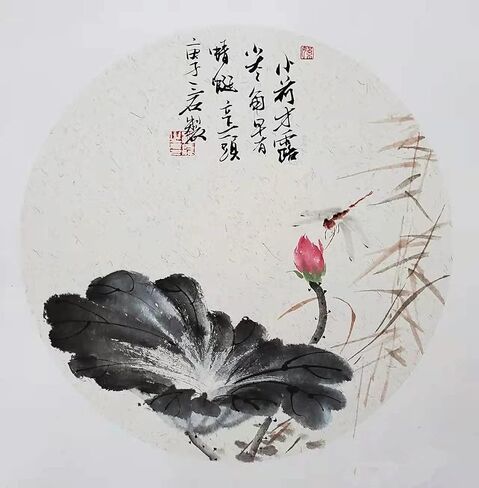 小荷才露
尖々角早有
蜻蜓立上頭
庚子 石製